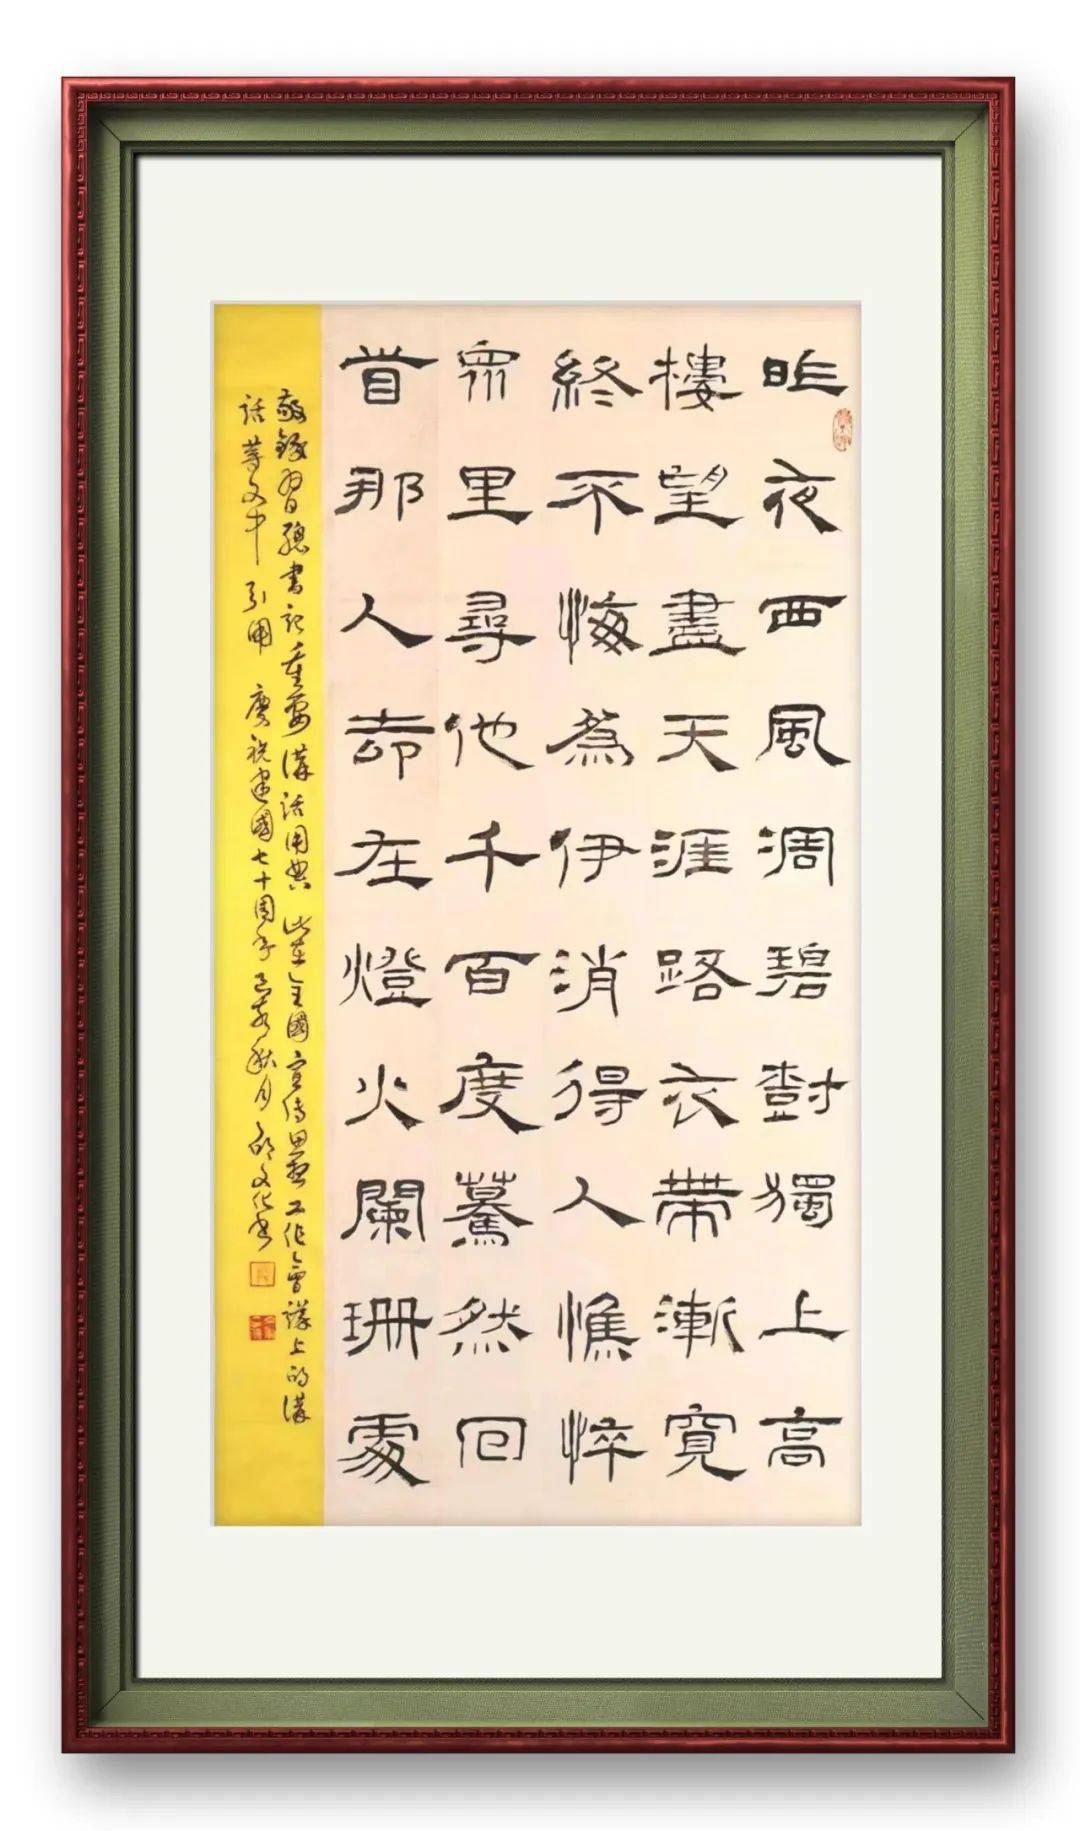 昨夜西風凋碧對獨上高
樓望盡天涯路衣帶漸寬
終不悔爲伊消得人憔悴
眾里尋他千百度驀然回
首那人却在燈火闌珊處
敬錄習總書記重要講話用典 此在全國宣傳思想工作會議上的講
話等文中引用 慶祝建國七十周年 己亥秋月 邱文化書